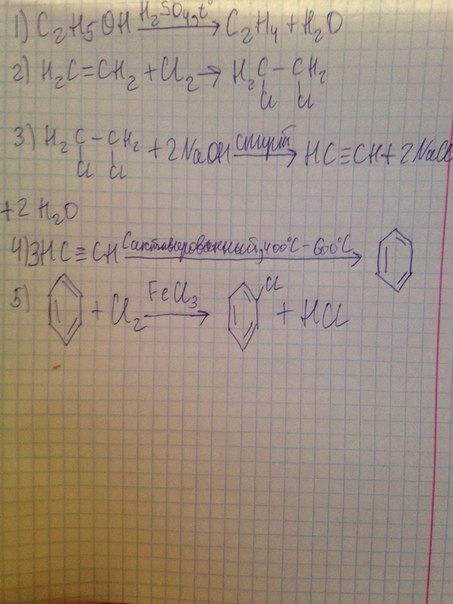 1) C₂H₅OH H₂SO₄, t° → C₂H₄ + H₂O
2) H₂C=CH₂ + Cl₂ → H₂C – CH₂
Cl Cl
3) H₂C – CH₂ + 2NaOH спирт → HC≡CH + 2NaCl
Cl Cl
+2 H₂O
4) 3HC≡CH C активированный, 400°C – 600°C →
5) + Cl₂ FeCl₃ → Cl + HCl